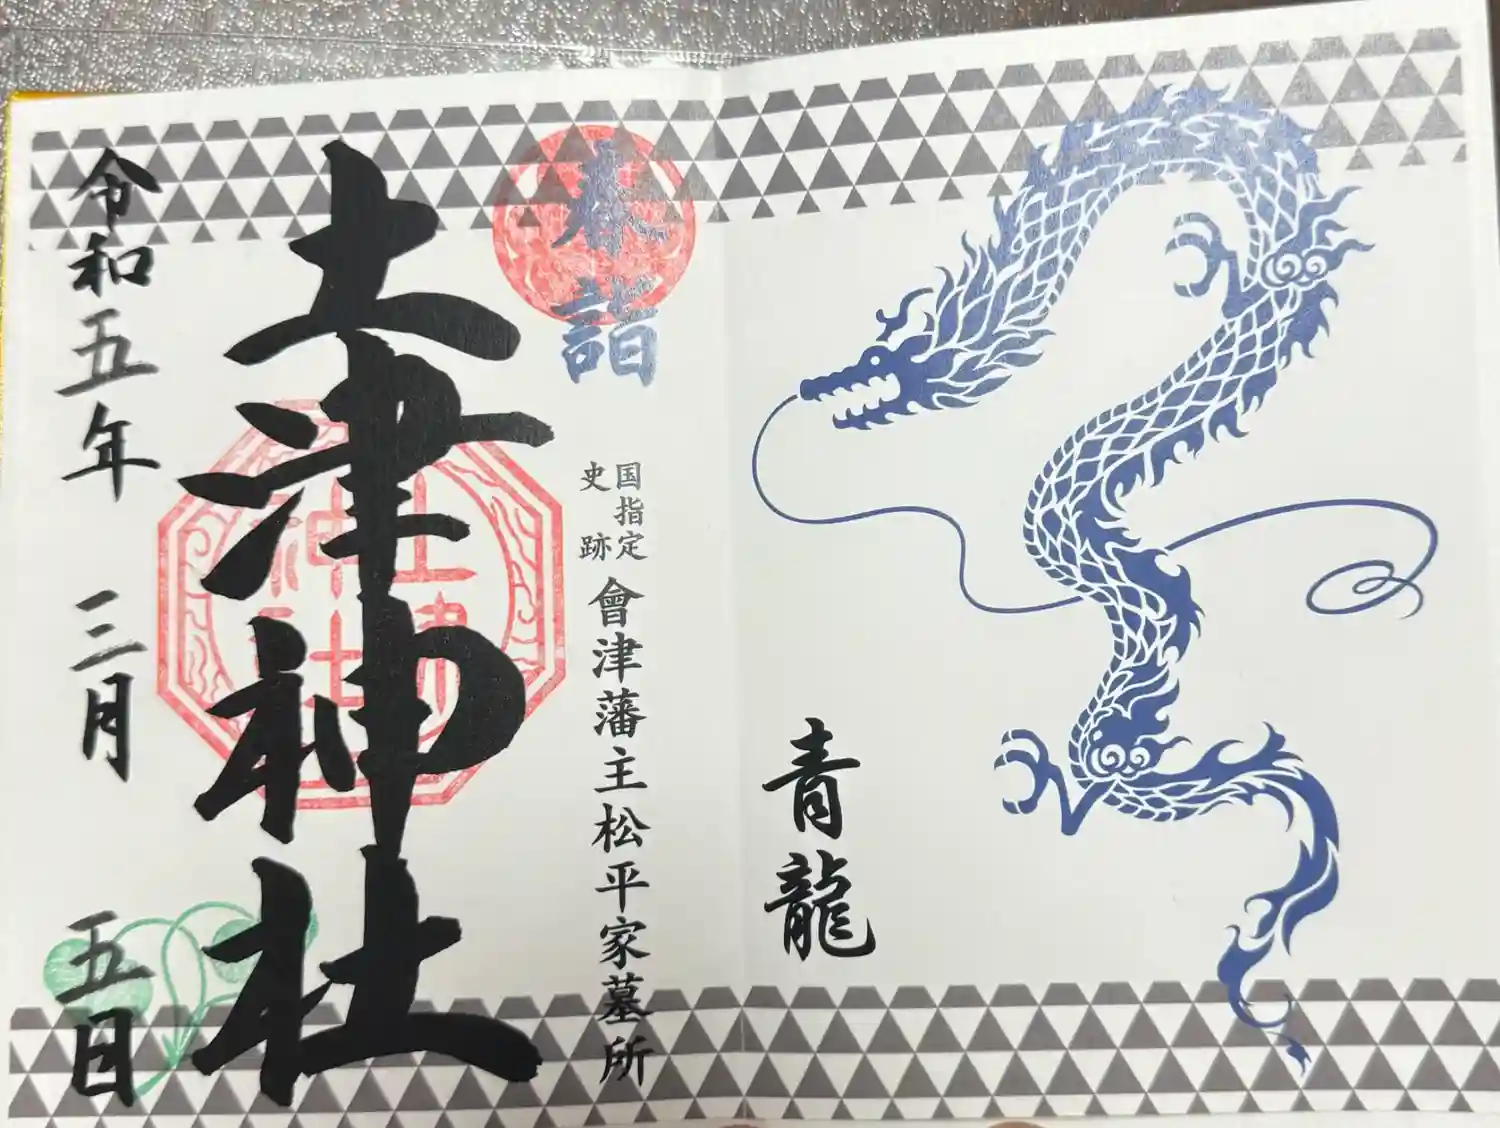 青龍
奉詣
国指定
史跡
會津藩主松平家墓所
土津神社
土津
神社
令和五年 三月 五日